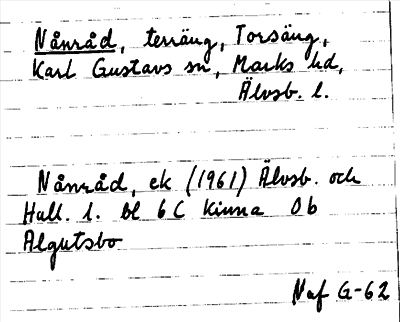 Nånråd, terräng, Torsäng,
Karl Gustavs sn, Marks hd,
Älvsb. l.
Nånråd, ek (1961) Älvsb. och
Hall. l. bl 6 C Kinna 0b
Algutsbo
Naf G-62